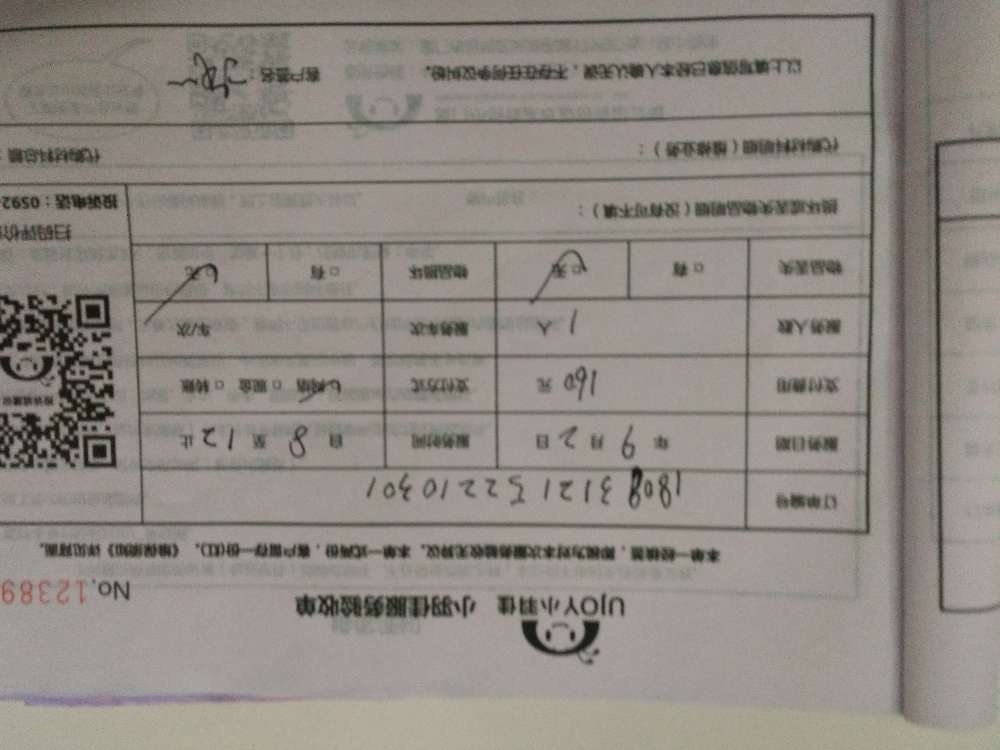 UJOY小羽佳 小羽佳服务验收单
No.12389
本单一经填签，即视为对本次服务验收无异议。本单一式两份，客户留存一份(红)。《维保须知》详见背面。
订单编号 1808312152210301
服务日期 年 9 月 2 日 服务时间 自 8 至 12 止
支付费用 160 元 支付方式 网络 □ 现金 □ 转账
服务人数 1 人 服务车次 车/次
物品丢失 □ 有 □ 无 物品损坏 □ 有 □ 无
扫码评价
投诉电话：0592
损坏或丢失物品明细（没有可不填）：
代购材料明细（维修业务）：
代购材料总额：
以上填写信息已经本人确认无误，不存在任何争议纠纷。 客户签名：